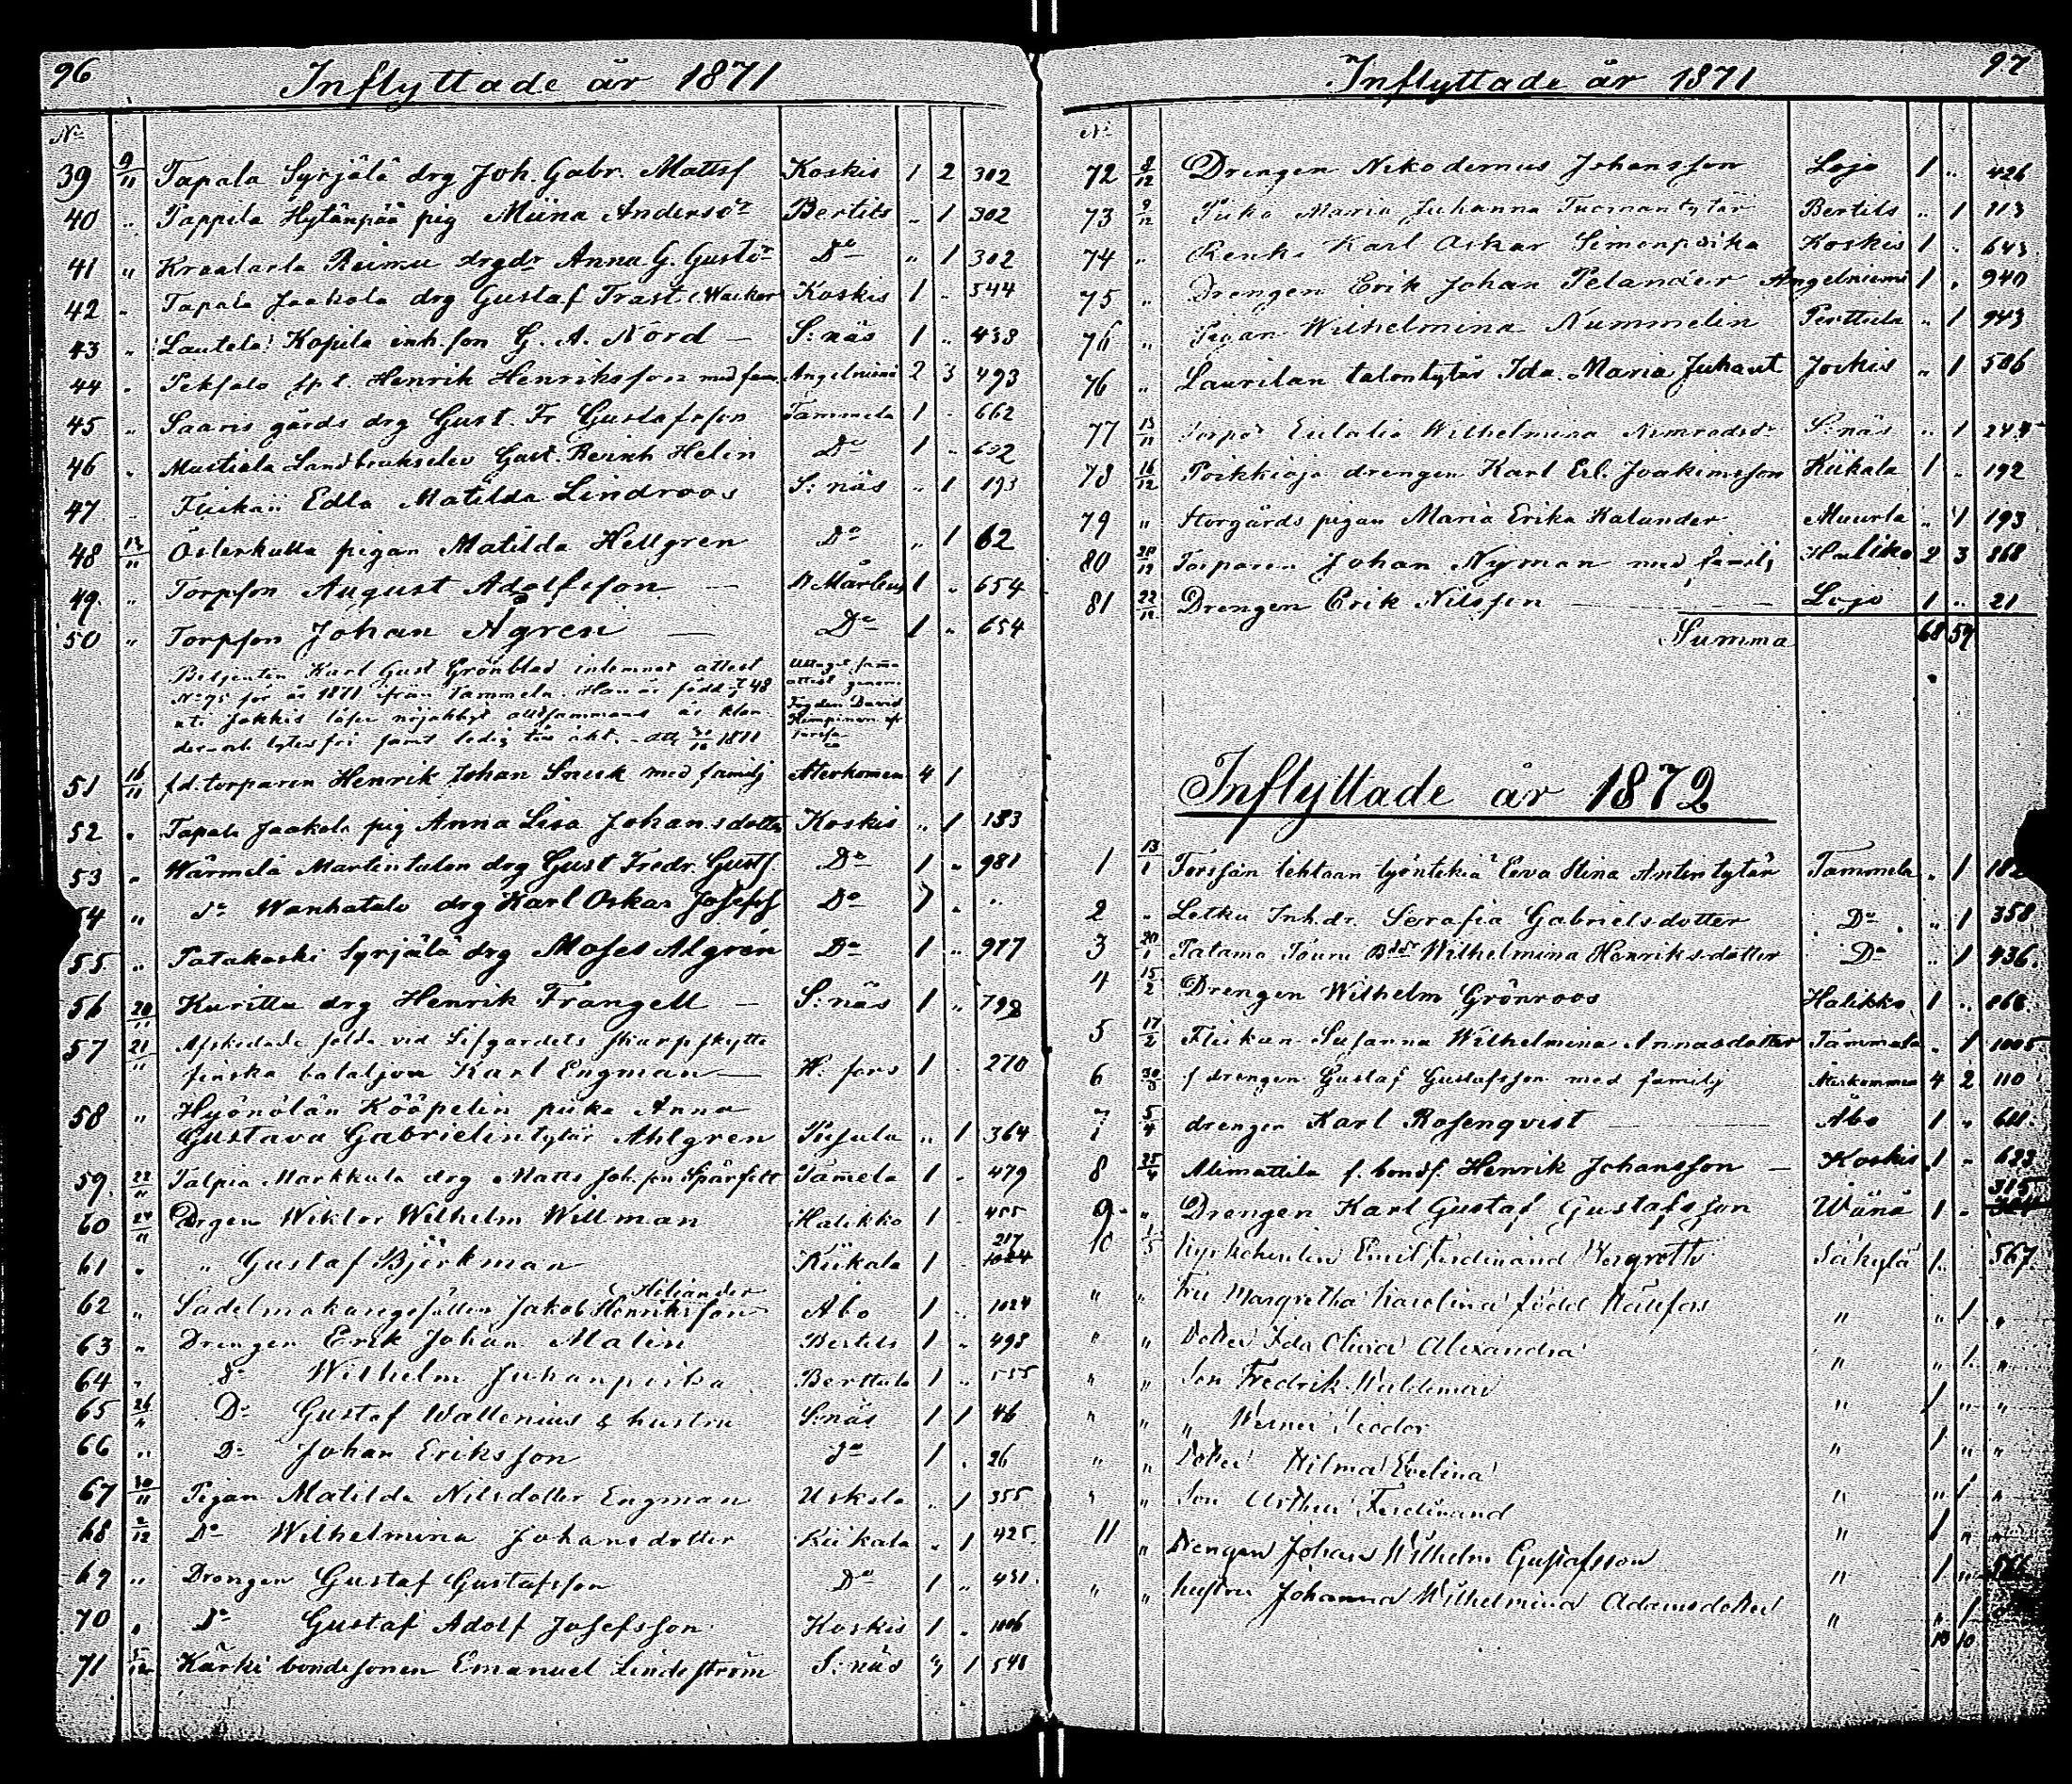 96
Inflyttade år 1871
No
39 9/11 Tapala Syrjälä drg Joh. Gabr. Mattsf Koskis 1 2 302
40 " Pappila Hytänpää pig Miina Andersdr Bertils " 1 302
41 " Kraatarla Reimu drgdr Anna G. Gustdr Do " 1 302
42 " Tapala Jaakola drg Gustaf Trast Koskis 1 " 544
43 " Lautela Kopila inh. son G. A. Nord — S:näs 1 " 438
44 " Henrik Henriksson med fam. Angelniemi 2 3 493
45 " Saaris gårds drg Gust. Fr Gustafsson Tammela 1 " 662
46 " Mustiala Landbrukselev Gust. Reinh Helin Do 1 " 692
47 " Edla Matilda Lindroos S:näs " 1 193
48 Österkulla pigan Matilda Hellgren Do " 1 62
49 " Torpson August Adolfsson — 1 " 654
50 " Torpson Johan Ågren — Do 1 " 654
Betjenten Karl Gust Grönblad inlemnat attest
No 95 för år 1871 från Tammela. Han är född
51 16/11 f.d. torparen Henrik Johan Snick med familj Återkommen 4 1
52 " Tapala Jaakola pig Anna Lisa Johansdotter Koskis " 1 183
53 " Wärmelä Martintalon drg Gust Fredr. Gustf. Do 1 " 981
54 " Do Wanhatalo drg Karl Oskar Josefsf Do 1 " "
55 " Patakoski Syrjälä drg Moses Algrén Do 1 " 917
56 20/11 Kuritta drg Henrik Frangell — S:näs 1 " 798
57 21/11 Afskedade vid Lifgardets skarpskytte
finska bataljon Karl Engman — H:fors 1 270
58 " Hyönölän Kööpelin piika Anna
Gustava Gabrielintytär Ahlgren Pusula " 1 364
59 22/11 Talpia Markkula drg Matts Joh. son Tamela 1 " 479
60 24/11 Drgen Wiktor Wilhelm Willman Halikko 1 455
61 " " Gustaf Björkman Kiikala 1 217 1024
Heliander
62 " Sadelmakaregesällen Jakob Henriksson Åbo 1 " 1024
63 " Drengen Erik Johan Malin Bertils 1 " 498
64 " Do Wilhelm Juhanpoika Berttula 1 " 555
65 26/11 Do Gustaf Wallenius & hustru S:näs 1 1 46
66 " Do Johan Eriksson Do 1 " 26
67 30/11 Pigan Matilda Nilsdotter Engman Uskela " 1 355
68 2/12 Do Wilhelmina Johansdotter Kiikala " 1 425
69 " Drengen Gustaf Gustafsson Do 1 " 431
70 " Do Gustaf Adolf Josefsson Koskis 1 " 1006
71 5/12 Kärki bondesonen Emanuel Lindström S:näs " 1 548
97
Inflyttade år 1871
No
72 8/12 Drengen Nikodemus Johansson Lojo 1 " 426
73 9/12 Piika Maria Juhanna Tuomantytär Bertils " 1 113
74 " Renki Karl Oskar Simonpoika Koskis 1 " 643
75 " Drengen Erik Johan Pelander Angelniemi 1 " 940
76 " Pigan Wilhelmina Nummelin Perttula " 1 943
76 " Laurilan talontytär Ida Maria Juhant Jockis " 1 586
77 Eulalia Wilhelmina Nimrodsdr S:näs " 1
78 16/12 Poikkioja drengen Karl Er. Joakimsson Kiikala 1 " 192
79 " Storgårds pigan Maria Erika Kalander Muurla " 1 193
80 20/12 Torparen Johan Nyman med familj Haliko 2 3 868
81 22/12 Drengen Erik Nilsson — Lojo 1 " 21
Summa 68 59
Inflyttade år 1872
1 13/1 Forssan tehtaan työntekiä Eeva Stina Antintytär Tammela " 1 182
2 " Letku Inh.dr. Serafia Gabrielsdotter Do " 1 358
3 20/1 Patamo Touru Bdr Wilhelmina Henriksdotter Do " 1 436
4 15/2 Drengen Wilhelm Grönroos Halikko 1 " 866
5 17/2 Flickan Susanna Wilhelmina Annasdotter Tammela " 1 1005
6 30/3 f drengen Gustaf Gustafsson med familj Återkommen 4 2 110
7 5/4 drengen Karl Rosenqvist — Åbo 1 " 611
8 25/4 Alimattila f. bonds. Henrik Johansson — Koskis 1 " 623
9 " Drengen Karl Gustaf Gustafsson Wånå 1 " 315
10 1/5 Emil Ferdinand Säkylä 1 567
" " Fru Margretha Karolina född " " 1 "
" " Dotter Ida Olivia Alexandra " " 1 "
" " Son Fredrik Waldemar " 1 " "
" " " Werner Teodor " 1 " "
" " Dotter Hilma Evelina " " 1 "
" " Son Arthur Ferdinand " 1 " "
11 " Drengen Johan Wilhelm Gustafsson " 1 "
" " hustru Johanna Wilhelmina Adamsdotter " " 1
10 10